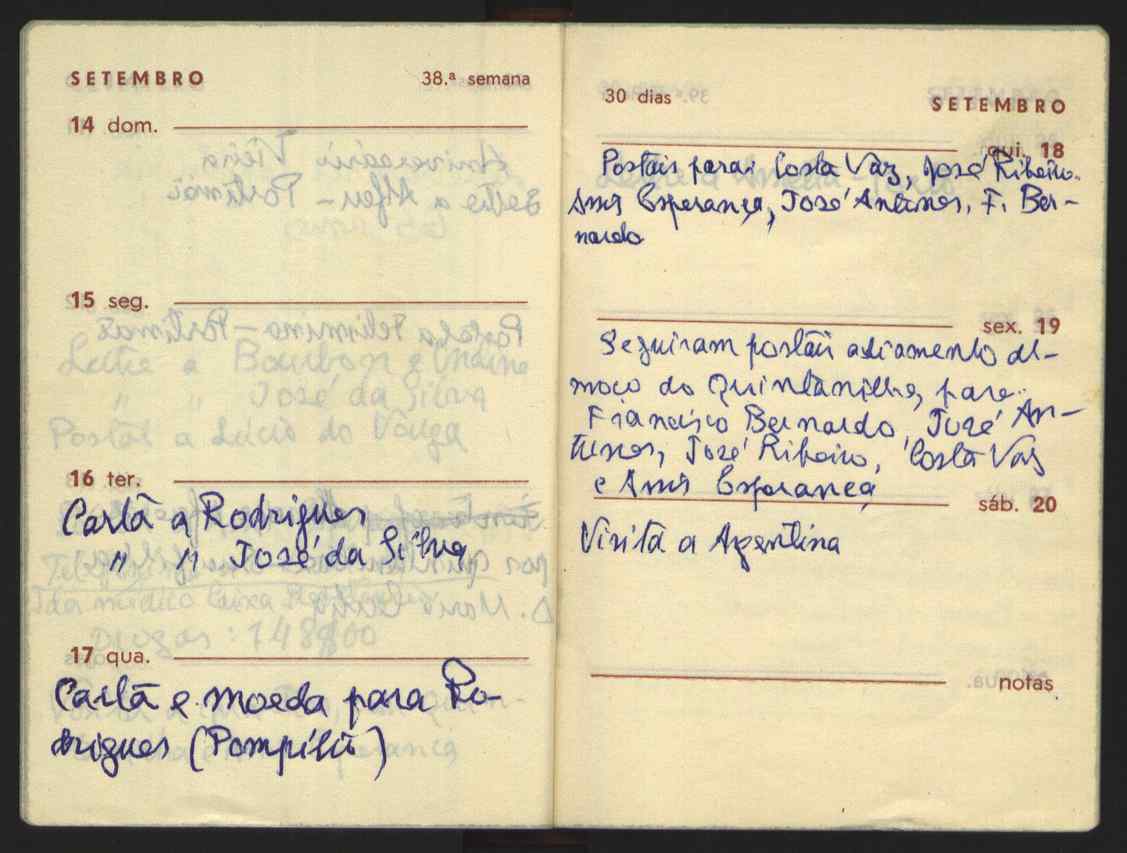 SETEMBRO 38.ª semana
14 dom.
15 seg.
16 ter.
Carta a Rodrigues
" " José da Silva
17 qua.
Carta e moeda para Ro-
drigues (Pompílio)
30 dias SETEMBRO
qui. 18
Postais para: Costa Vaz, José Ribeiro.
Assis Esperança, José Antunes, F. Ber-
nardo
sex. 19
Seguiram postais adiamento al-
moço do Quintanilha, para
Francisco Bernardo, José An-
tunes, José Ribeiro, Costa Vaz
e Assis Esperança
sáb. 20
Visita a Argentina
notas